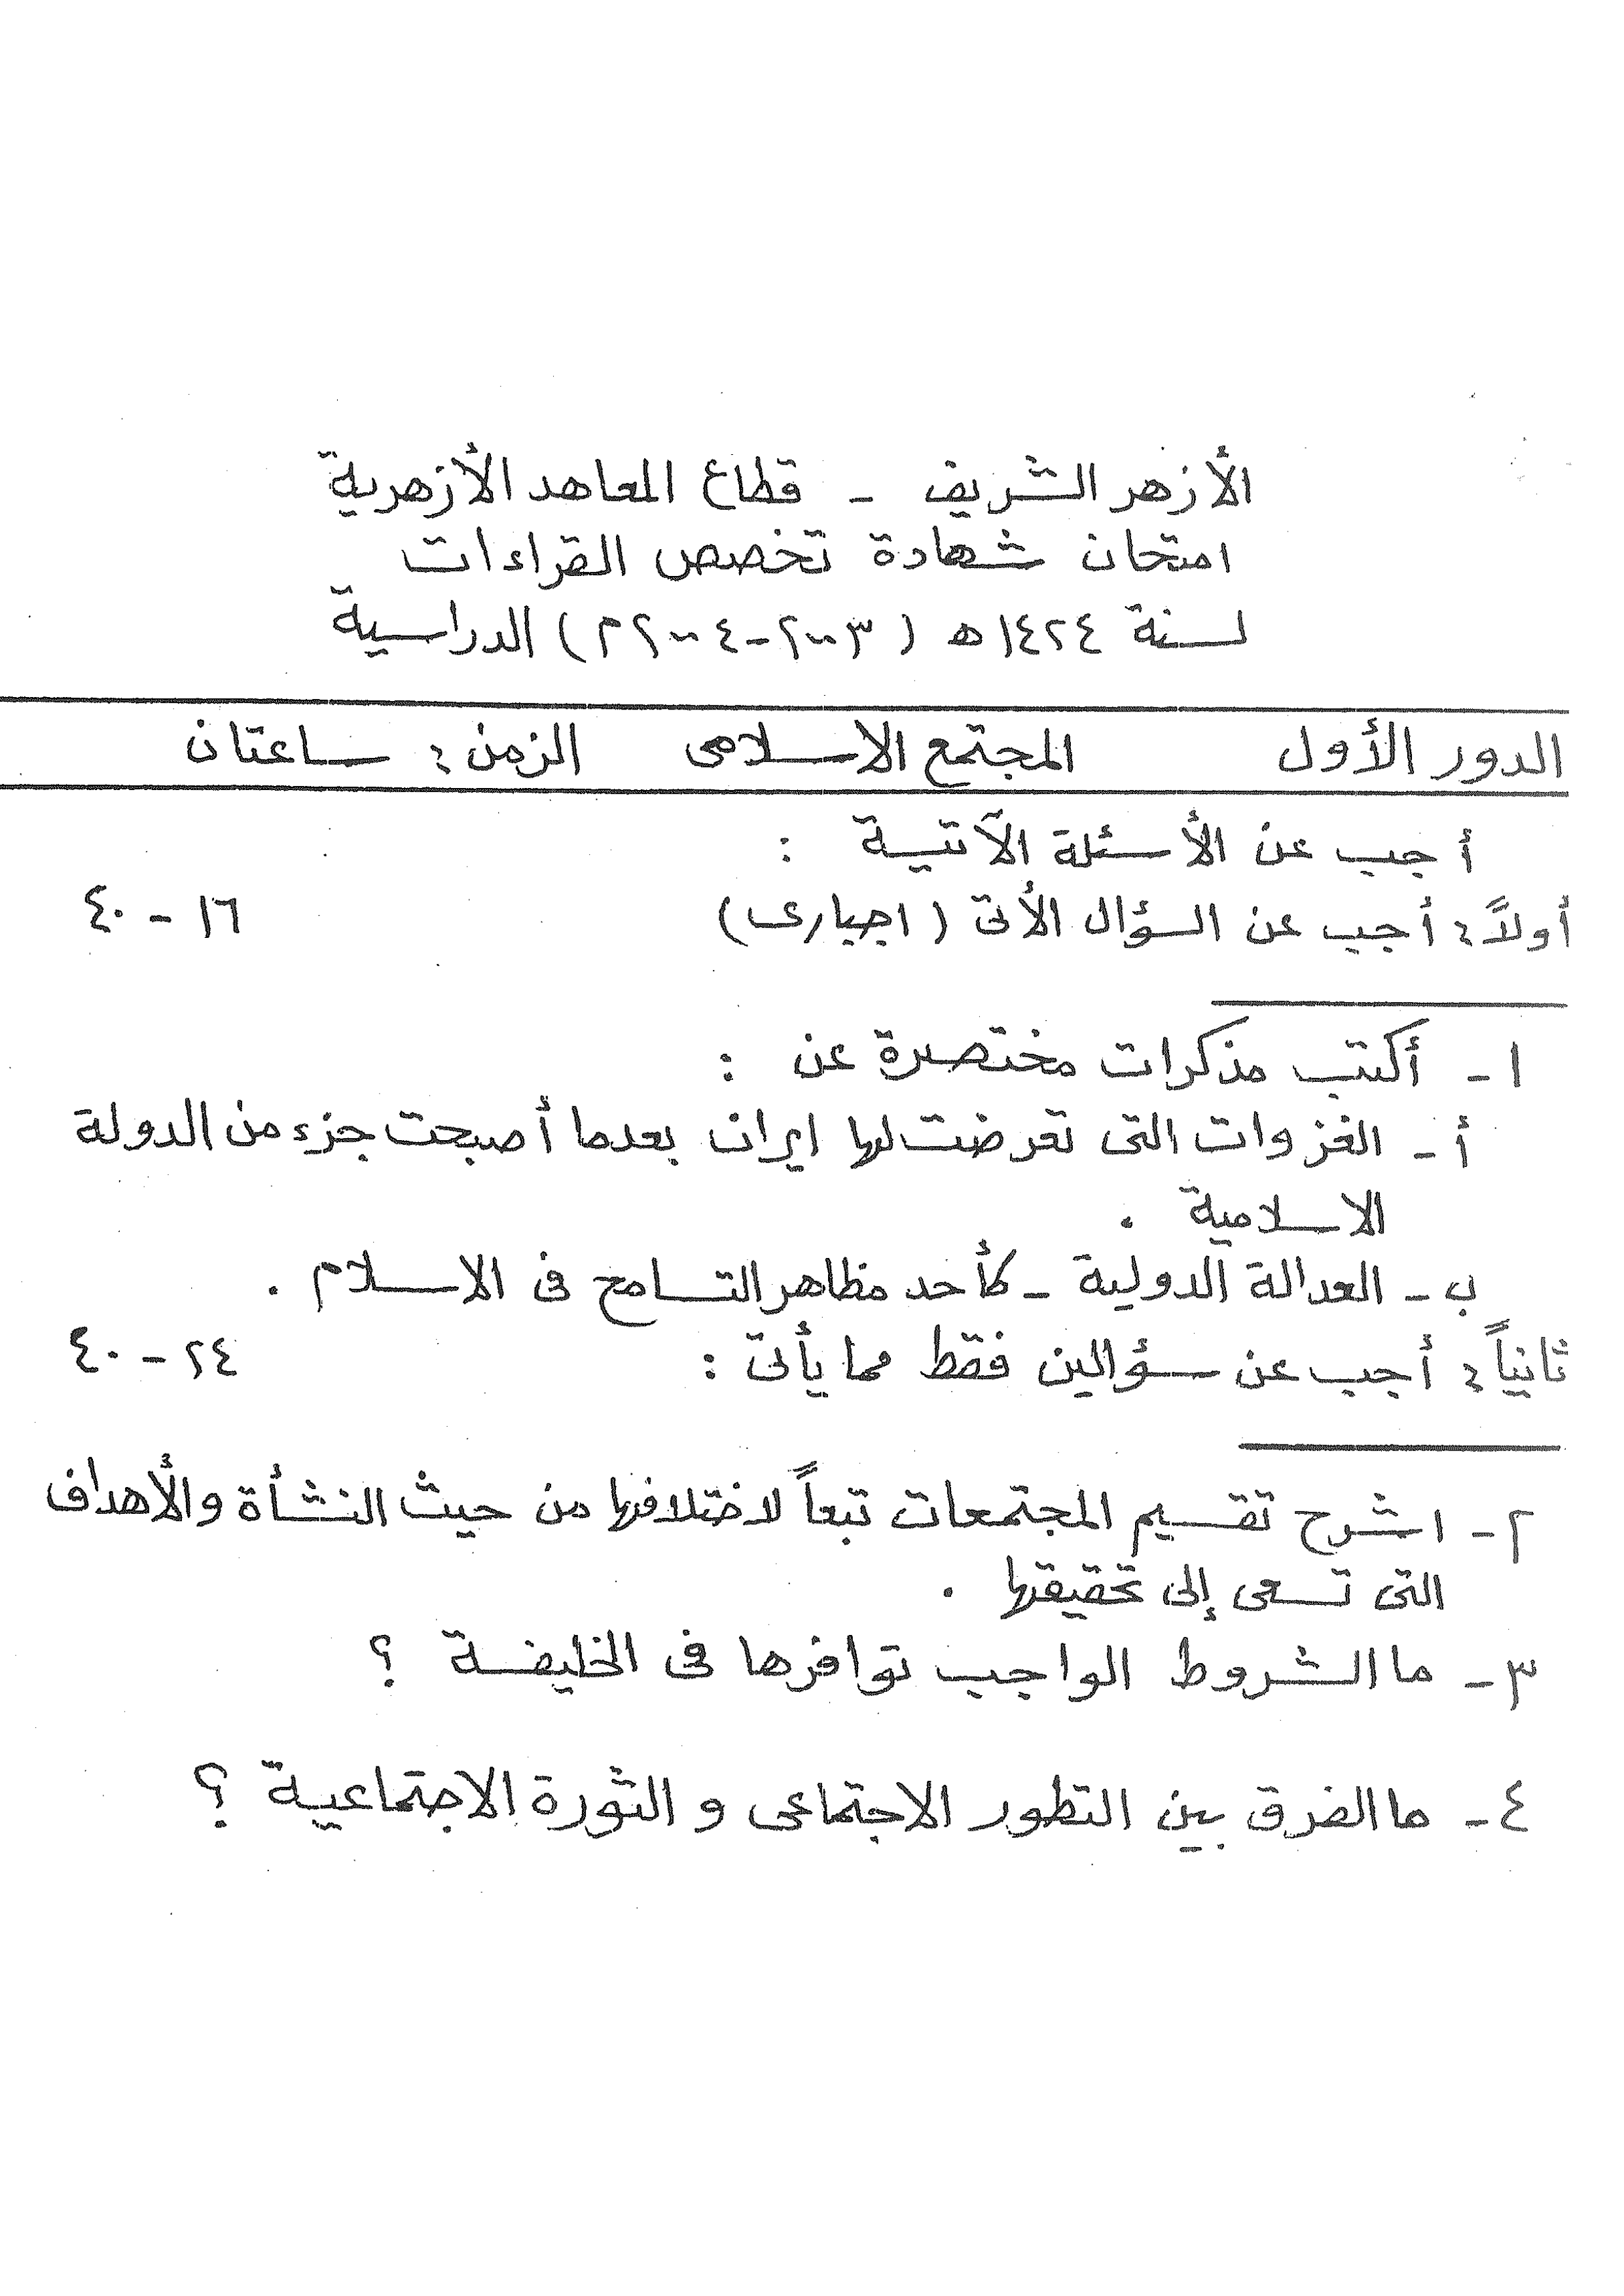 الأزهر الشريف - قطاع المعاهد الأزهرية
امتحان شهادة تخصص القراءات
لسنة ١٤٢٤ ه (٢٠٠٣-٢٠٠٤ م) الدراسية
الدور الأول المجتمع الاسلامى الزمن : ساعتان
أجب عن الأسئلة الآتية :
أولاً : أجب عن السؤال الأتى (اجبارى) ١٦ - ٤٠
١- أكتب مذكرات مختصرة عن :
أ- الغزوات التى تعرضت لها ايران بعدما أصبحت جزء من الدولة
الاسلامية .
ب- العدالة الدولية - كأحد مظاهر التسامح فى الاسلام .
ثانياً : أجب عن سؤالين فقط مما يأتى : ٢٤ - ٤٠
٢- اشرح تقسيم المجتمعات تبعاً لاختلافها من حيث النشأة والأهداف
التى تسعى إلى تحقيقها .
٣- ما الشروط الواجب توافرها فى الخليفة ؟
٤- ما الفرق بين التطور الاجتماعى و الثورة الاجتماعية ؟